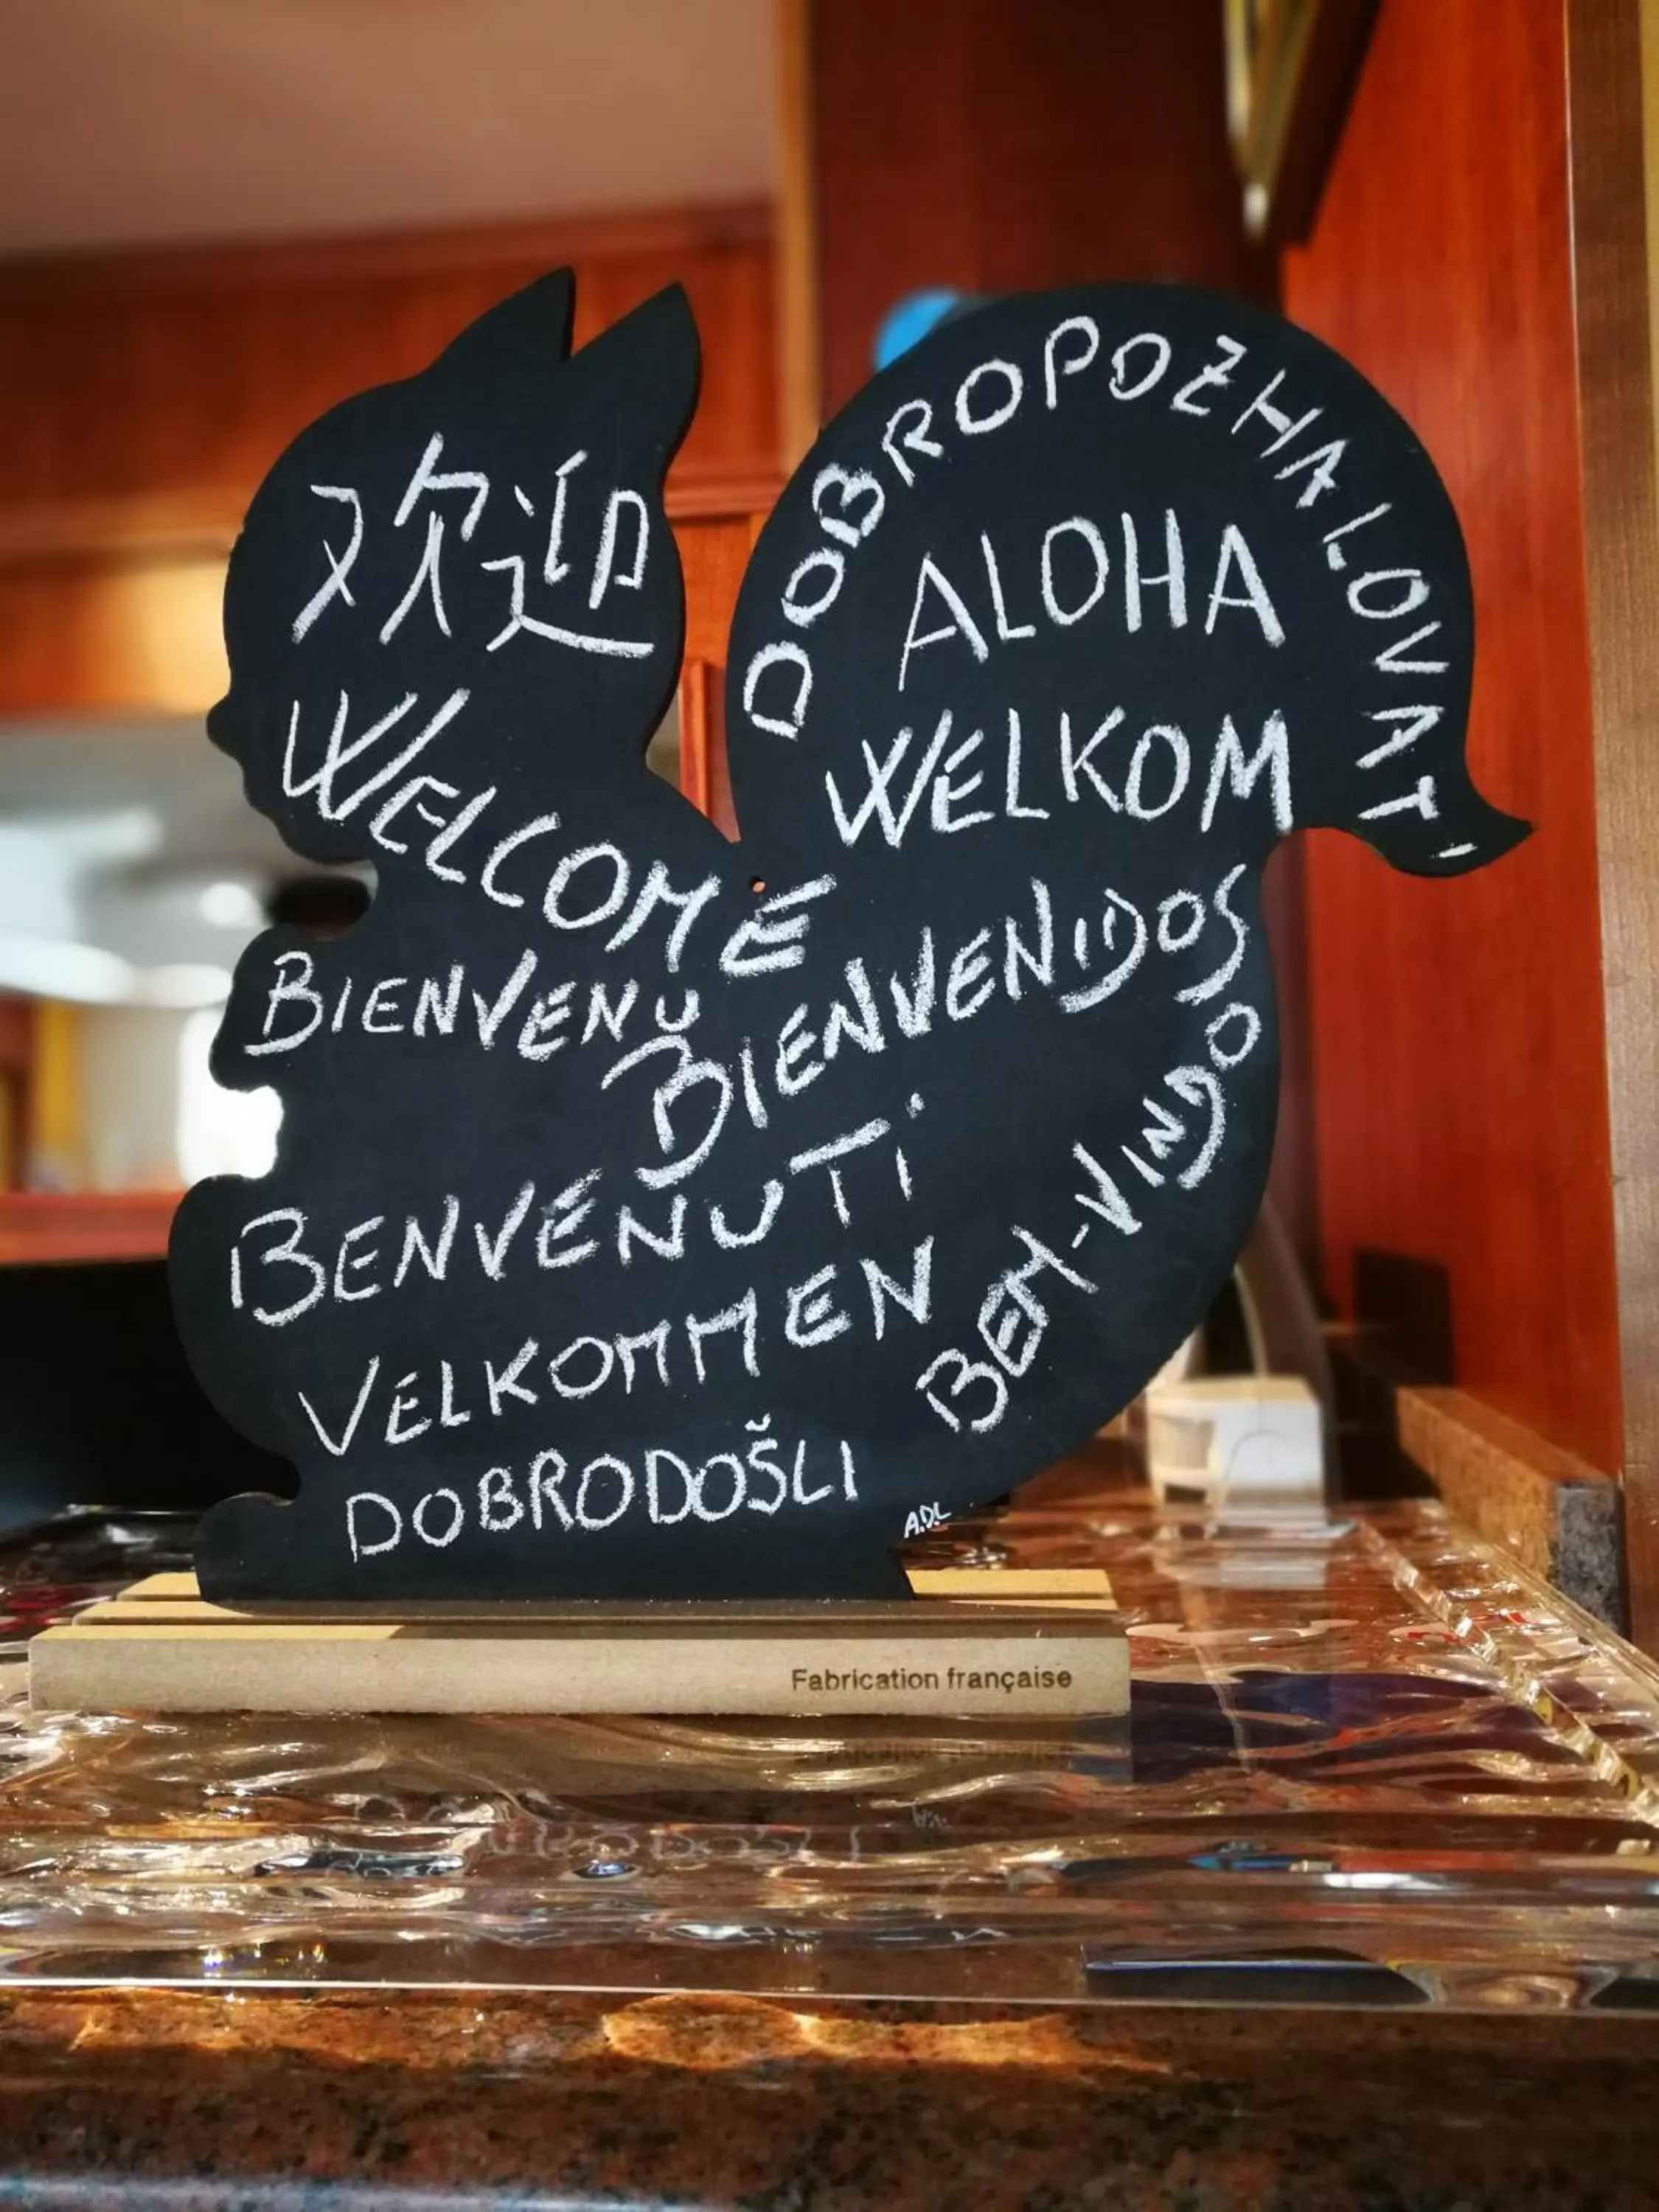 欢迎
WELCOME
BIENVENU
BIENVENIDOS
BENVENUTI
VELKOMMEN
DOBRODOŠLI
DOBROPOZHALOVAT'
ALOHA
WELKOM
BEM-VINDO
A.D.L
Fabrication française